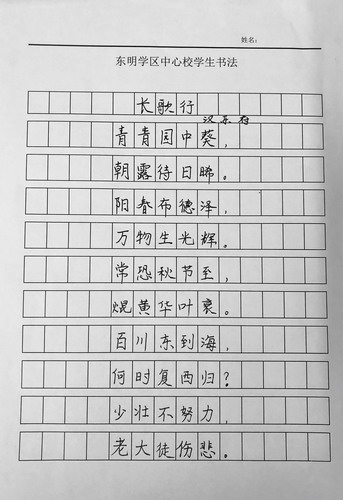 姓名：
东明学区中心校学生书法
长歌行
汉乐府
青青园中葵，
朝露待日晞。
阳春布德泽，
万物生光辉。
常恐秋节至，
焜黄华叶衰。
百川东到海，
何时复西归？
少壮不努力，
老大徒伤悲。